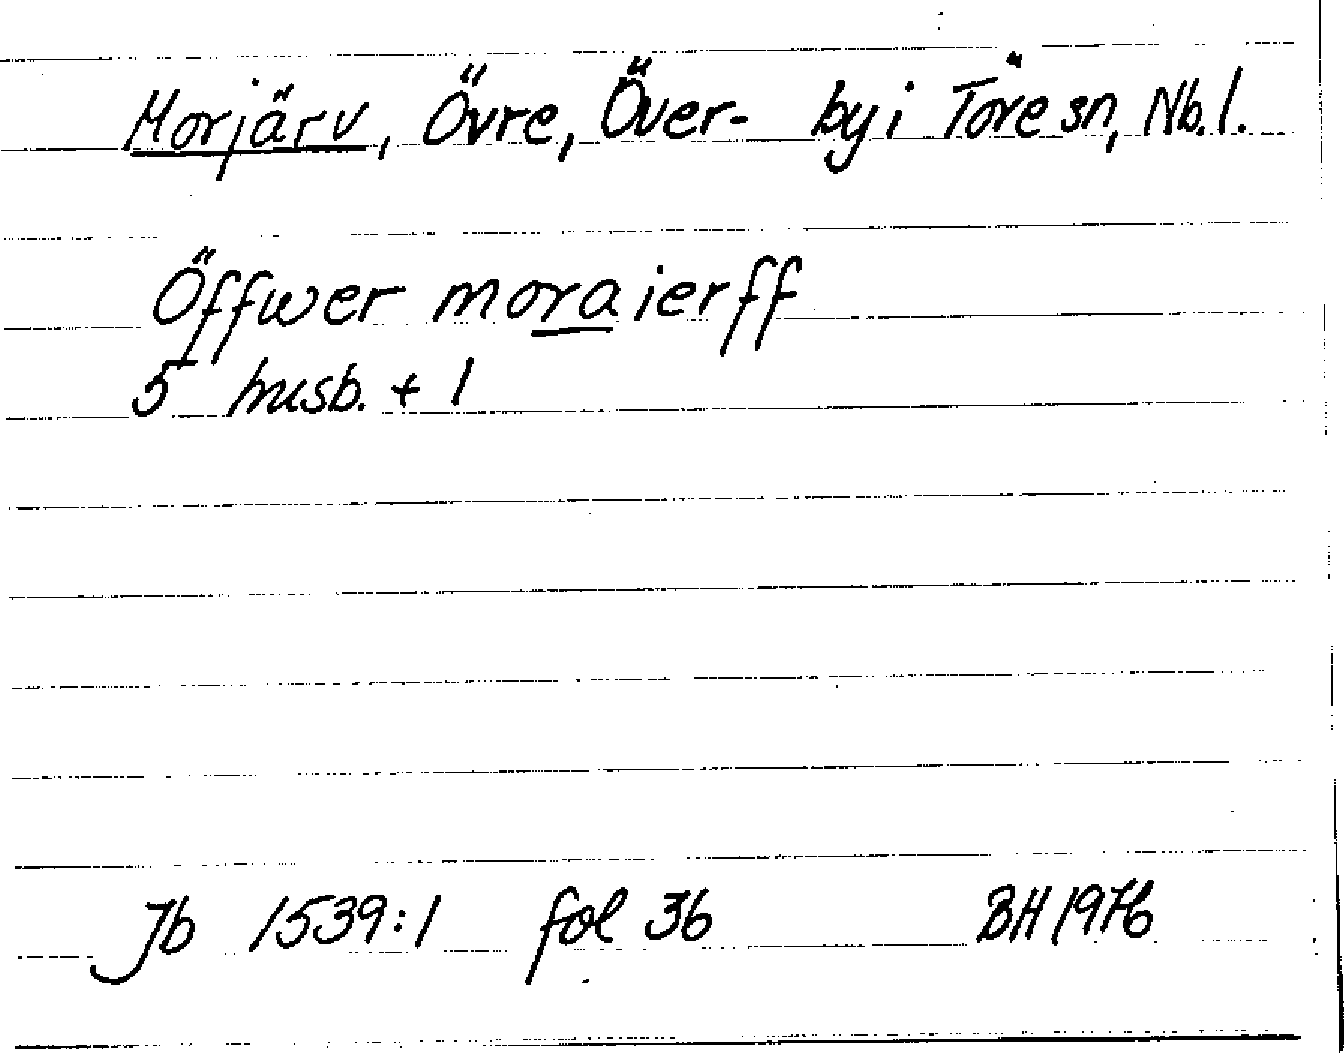 Morjärv, Övre, Över- by i Töre sn, Nb. l.
Öffwer moraierff
5 husb. + 1
Jb 1539:1 fol 36 BH 1976